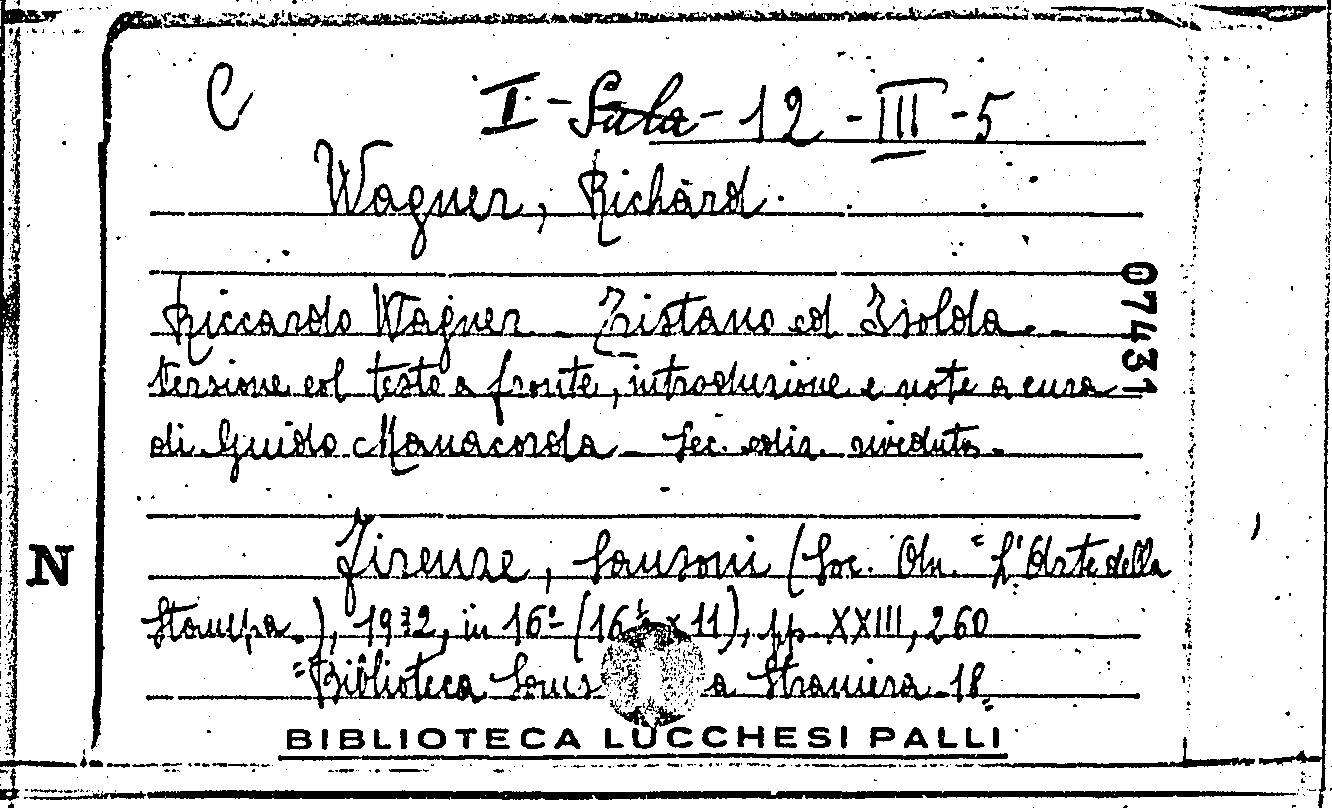 C
I - Sala - 12 - III - 5
Wagner, Richard.
Riccardo Wagner - Tristano ed Isolda. -
Versione col testo a fronte, introduzione e note a cura
di Guido Manacorda - Sec. ediz. riveduta.
Firenze, Sansoni (Soc. An. "L'Arte della
Stampa.), 1932, in 16º (16,5 x 11), pp. XXIII, 260
=Biblioteca Sans a straniera - 18=
BIBLIOTECA LUCCHESI PALLI
N
07431